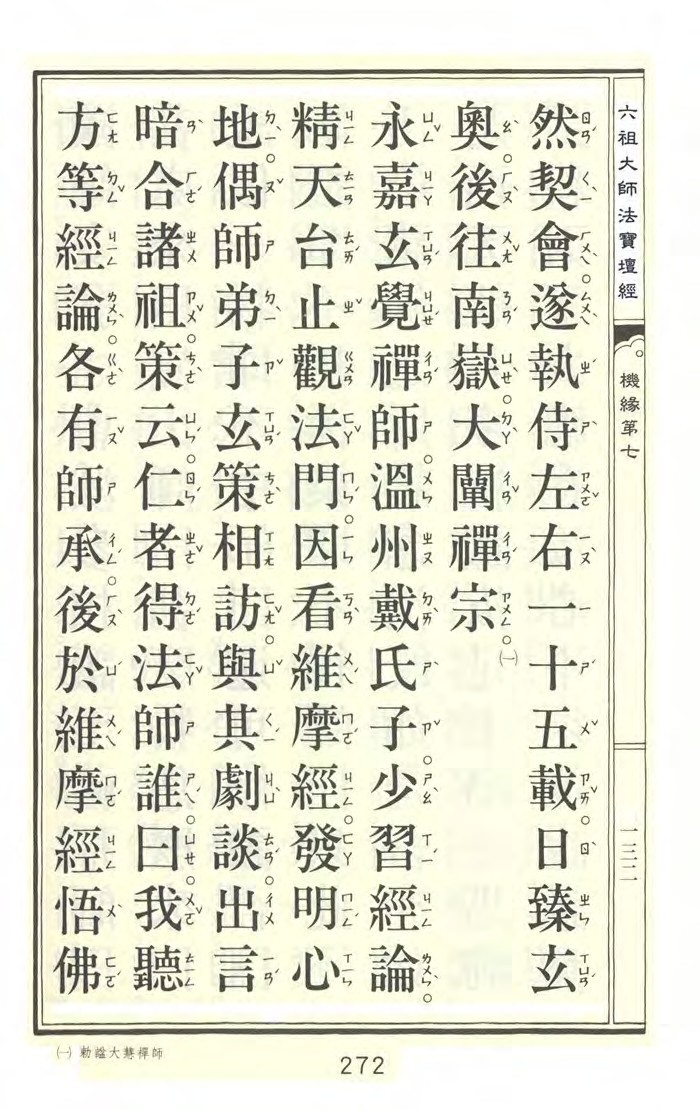 六祖大師法寶壇經
機緣第七
一三二
然契會。遂執侍左右一十五載。日臻玄
奧。後往南嶽。大闡禪宗。㈠
永嘉玄覺禪師。溫州戴氏子。少習經論。
精天台止觀法門。因看維摩經。發明心
地。偶師弟子玄策相訪。與其劇談。出言
暗合諸祖。策云。仁者得法師誰。曰。我聽
方等經論。各有師承。後於維摩經悟佛
㈠ 勅諡大慧禪師
272